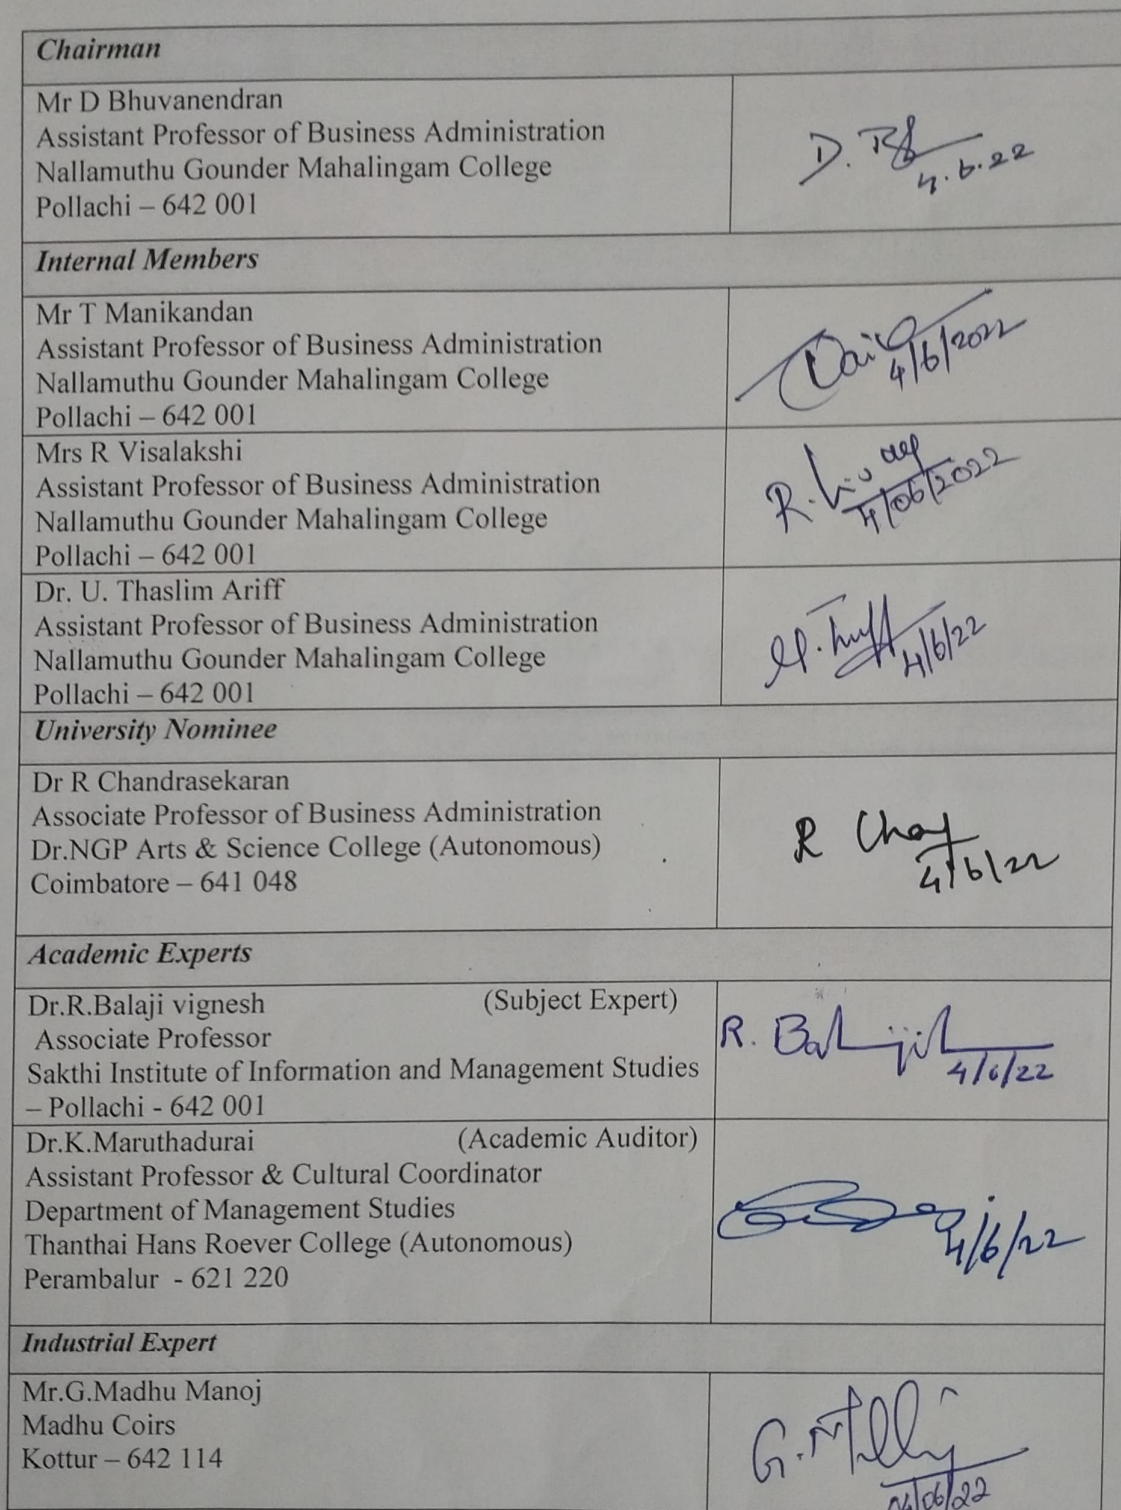 Chairman
Mr D Bhuvanendran
Assistant Professor of Business Administration
Nallamuthu Gounder Mahalingam College
Pollachi – 642 001
D.
4.6.22
Internal Members
Mr T Manikandan
Assistant Professor of Business Administration
Nallamuthu Gounder Mahalingam College
Pollachi – 642 001
4/6/2022
Mrs R Visalakshi
Assistant Professor of Business Administration
Nallamuthu Gounder Mahalingam College
Pollachi – 642 001
R.
4/06/2022
Dr. U. Thaslim Ariff
Assistant Professor of Business Administration
Nallamuthu Gounder Mahalingam College
Pollachi – 642 001
4/6/22
University Nominee
Dr R Chandrasekaran
Associate Professor of Business Administration
Dr.NGP Arts & Science College (Autonomous)
Coimbatore – 641 048
R
4/6/22
Academic Experts
Dr.R.Balaji vignesh (Subject Expert)
Associate Professor
Sakthi Institute of Information and Management Studies
– Pollachi - 642 001
R.
4/6/22
Dr.K.Maruthadurai (Academic Auditor)
Assistant Professor & Cultural Coordinator
Department of Management Studies
Thanthai Hans Roever College (Autonomous)
Perambalur - 621 220
4/6/22
Industrial Expert
Mr.G.Madhu Manoj
Madhu Coirs
Kottur – 642 114
G.
04/06/22